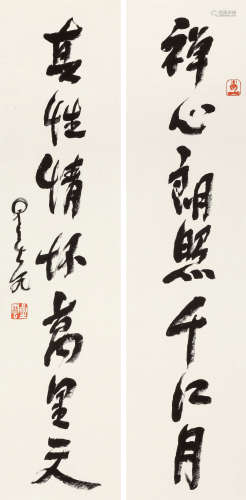 禅心朗照千江月
真性情怀萬里天
星雲